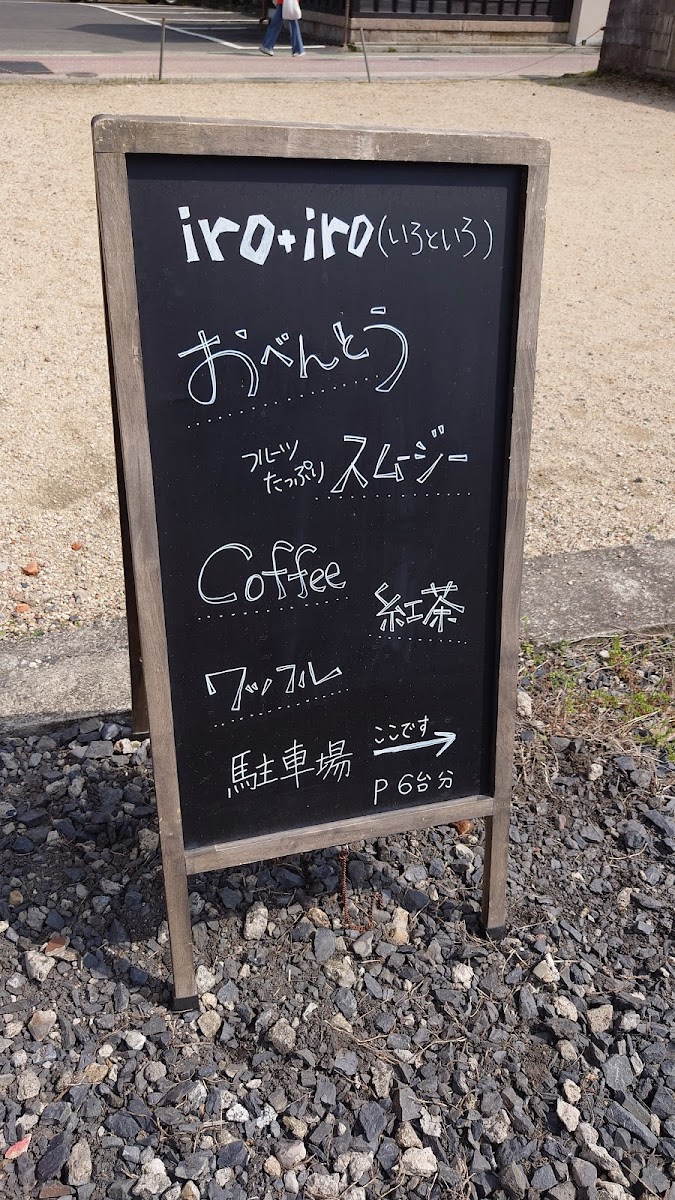 iro+iro(いろといろ)
おべんとう
フルーツ
たっぷり スムージー
Coffee
紅茶
ワッフル
駐車場 ここです→
P 6台分